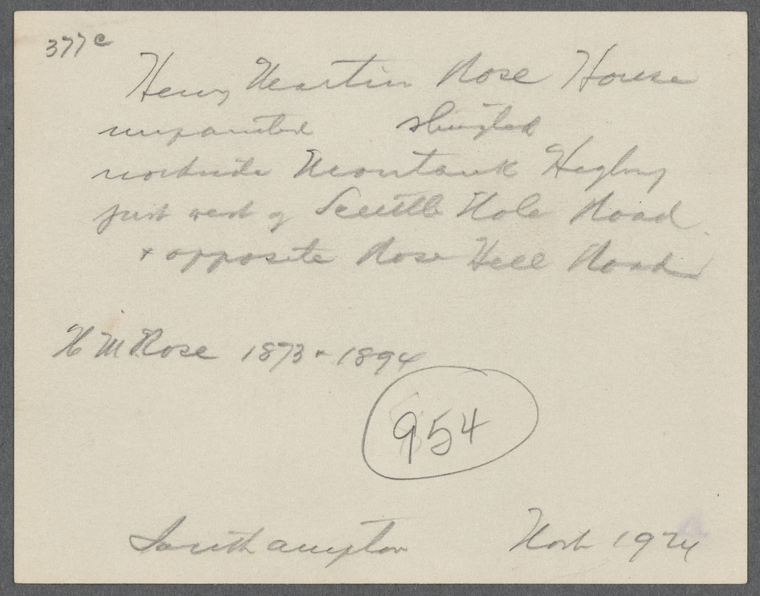 377c
Henry Martin Rose House
unpainted shingled
northside Montauk Highwy
just west of Scuttle Hole Road
+ opposite Rose Hill Road
H M Rose 1873 - 1894
954
Southampton 1924